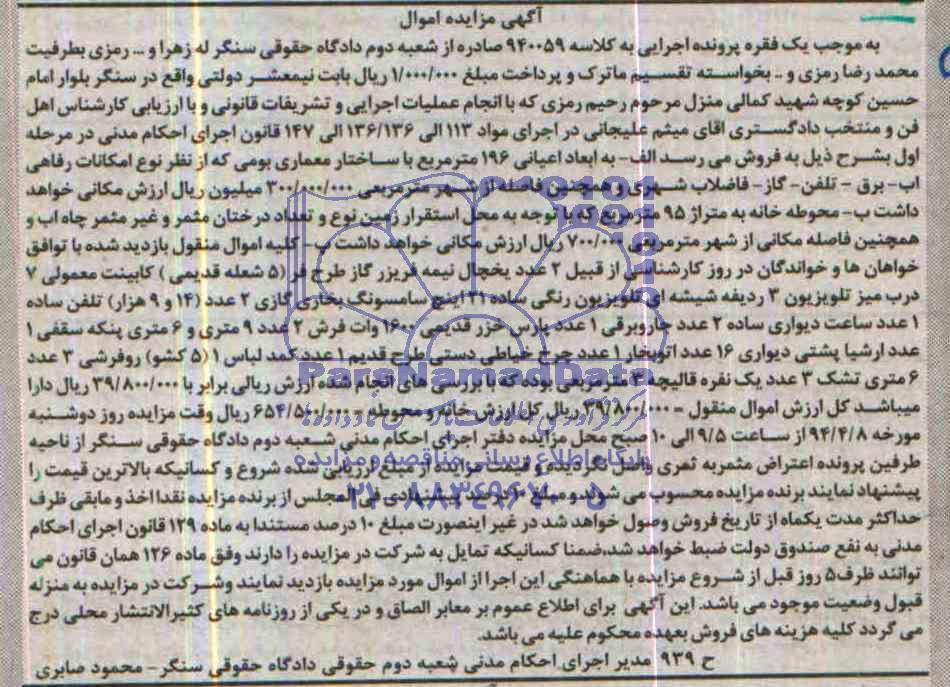 آگهی مزایده اموال
به موجب یک فقره پرونده اجرایی به کلاسه ۹۴۰۰۵۹ صادره از شعبه دوم دادگاه حقوقی سنگر له زهرا و ... رمزی بطرفیت
محمد رضا رمزی و .. بخواسته تقسیم ماترک و پرداخت مبلغ ۱/۰۰۰/۰۰۰ ریال بابت نیمعشر دولتی واقع در سنگر بلوار امام
حسین کوچه شهید کمالی منزل مرحوم رحیم رمزی که با انجام عملیات اجرایی و تشریفات قانونی و با ارزیابی کارشناس اهل
فن و منتخب دادگستری اقای میثم علیجانی در اجرای مواد ۱۱۳ الی ۱۳۶/۱۳۶ الی ۱۴۷ قانون اجرای احکام مدنی در مرحله
اول بشرح ذیل به فروش می رسد الف- به ابعاد اعیانی ۱۹۶ مترمربع با ساختار معماری بومی که از نظر نوع امکانات رفاهی
اب- برق - تلفن- گاز- فاضلاب شهری و همچنین فاصله از شهر مترمربعی ۳۰۰/۰۰۰/۰۰۰ میلیون ریال ارزش مکانی خواهد
داشت ب- محوطه خانه به متراژ ۹۵ مترمربع که با توجه به محل استقرار زمین نوع و تعداد درختان مثمر و غیر مثمر چاه اب و
همچنین فاصله مکانی از شهر مترمربعی ۷۰۰/۰۰۰ ریال ارزش مکانی خواهد داشت ب- کلیه اموال منقول بازدید شده با توافق
خواهان ها و خواندگان در روز کارشناسی از قبیل ۲ عدد یخچال نیمه فریزر گاز طرح فر (۵ شعله قدیمی) کابینت معمولی ۷
درب میز تلویزیون ۳ ردیفه شیشه ای تلویزیون رنگی ساده ۲۱ اینچ سامسونگ بخاری گازی ۲ عدد (۱۴ و ۹ هزار) تلفن ساده
۱ عدد ساعت دیواری ساده ۲ عدد جاروبرقی ۱ عدد پارس خزر قدیمی ۱۶۰۰ وات فرش ۲ عدد ۹ متری و ۶ متری پنکه سقفی ۱
عدد ارشیا پشتی دیواری ۱۶ عدد اتوبخار ۱ عدد چرخ خیاطی دستی طرح قدیم ۱ عدد کمد لباس ۱ (۵ کشو) روفرشی ۳ عدد
۶ متری تشک ۳ عدد یک نفره قالیچه ۳ مترمربعی بوده که با بررسی های انجام شده ارزش ریالی برابر با ۳۹/۸۰۰/۰۰۰ ریال دارا
میباشد کل ارزش اموال منقول = ۳۹/۸۰۰/۰۰۰ ریال کل ارزش خانه و محوطه = ۶۵۴/۵۰۰/۰۰۰ ریال وقت مزایده روز دوشنبه
مورخه ۹۴/۴/۸ از ساعت ۹/۵ الی ۱۰ صبح محل مزایده دفتر اجرای احکام مدنی شعبه دوم دادگاه حقوقی سنگر از ناحیه
طرفین پرونده اعتراض مثمربه ثمری واصل نگردیده و قیمت مزایده از مبلغ ارزیابی شده شروع و کسانیکه بالاترین قیمت را
پیشنهاد نمایند برنده مزایده محسوب می شوند و مبلغ ۱۰ درصد پیشنهادی فی المجلس از برنده مزایده نقدا اخذ و مابقی ظرف
حداکثر مدت یکماه از تاریخ فروش وصول خواهد شد در غیر اینصورت مبلغ ۱۰ درصد مستندا به ماده ۱۲۹ قانون اجرای احکام
مدنی به نفع صندوق دولت ضبط خواهد شد،ضمنا کسانیکه تمایل به شرکت در مزایده را دارند وفق ماده ۱۲۶ همان قانون می
توانند ظرف۵ روز قبل از شروع مزایده با هماهنگی این اجرا از اموال مورد مزایده بازدید نمایند وشرکت در مزایده به منزله
قبول وضعیت موجود می باشد. این آگهی برای اطلاع عموم بر معابر الصاق و در یکی از روزنامه های کثیرالانتشار محلی درج
می گردد کلیه هزینه های فروش بعهده محکوم علیه می باشد.
ح ۹۳۹ مدیر اجرای احکام مدنی شعبه دوم حقوقی دادگاه حقوقی سنگر- محمود صابری
ParsNamadData
پایگاه اطلاع رسانی مناقصه و مزایده
۰۲۱-۸۸۳۴۹۶۷۰-۵